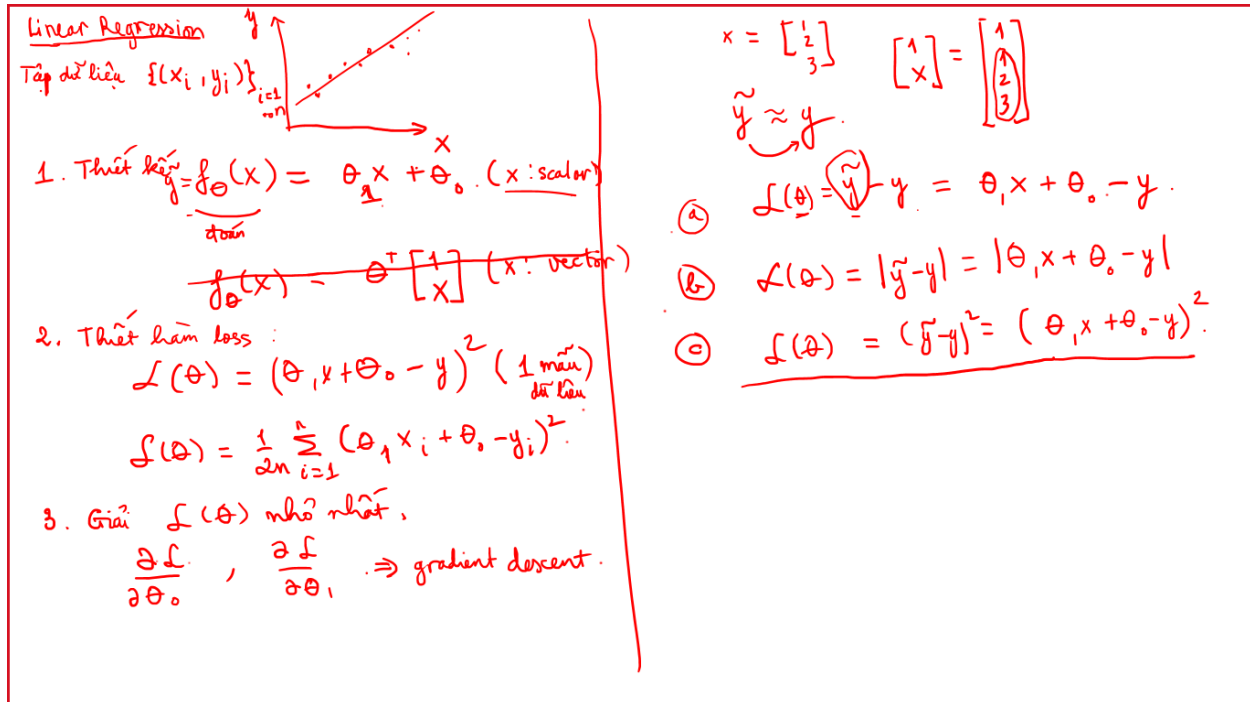 Linear Regression
y
Tập dữ liệu {(x_i, y_i)}_{i=1→n}
x
1. Thiết kế ỹ = f_θ(x) = θ_1 x + θ_0. (x: scalar)
đoán
f_θ(x) = θ^T [1 x] (x: vector)
2. Thiết hàm loss:
L(θ) = (θ_1 x + θ_0 - y)^2 (1 mẫu dữ liệu)
L(θ) = 1/2n Σ_{i=1}^{n} (θ_1 x_i + θ_0 - y_i)^2.
3. Giải L(θ) nhỏ nhất.
∂L/∂θ_0, ∂L/∂θ_1 ⇒ gradient descent.
x = [1 2 3] [1 x] = [1 1 2 3]
ỹ ≈ y.
(a) L(θ) = ỹ - y = θ_1 x + θ_0 - y.
(b) L(θ) = |ỹ - y| = |θ_1 x + θ_0 - y|
(c) L(θ) = (ỹ - y)^2 = (θ_1 x + θ_0 - y)^2.